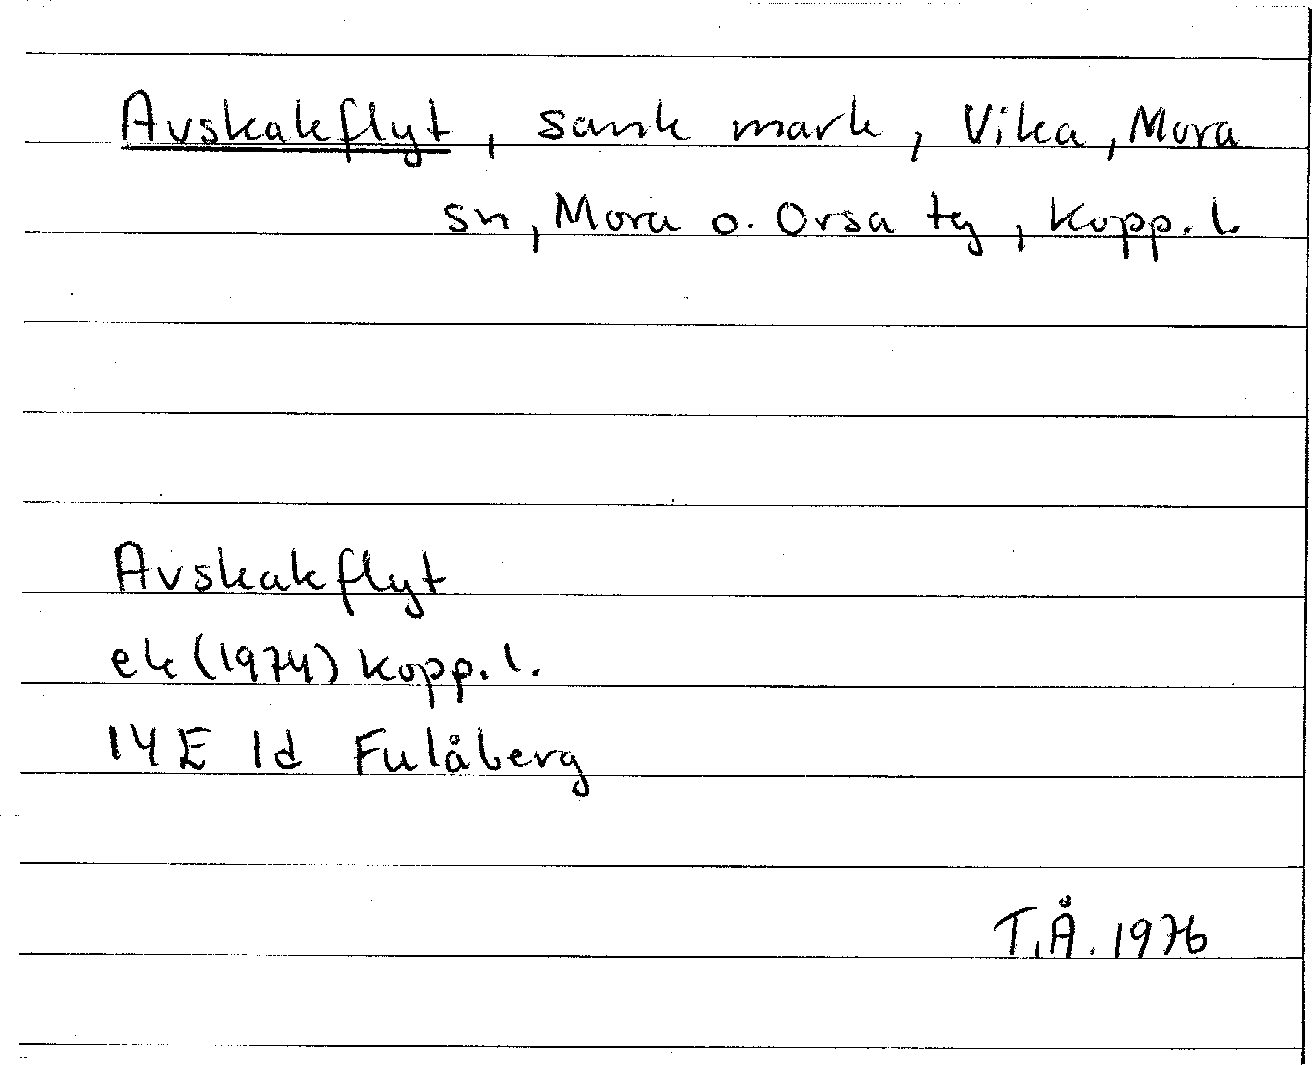 Avskakflyt, sank mark, Vika, Mora
sn, Mora o. Orsa tg, Kopp. l.
Avskakflyt
ek (1974) Kopp. l.
14E 1d Fulåberg
T.Å. 1976